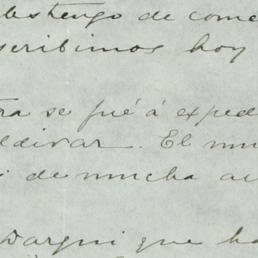 abstengo de come
scribimos hoy
ra se fué á exped
ldivar. El mu
de mucha ac
Darqui que ha